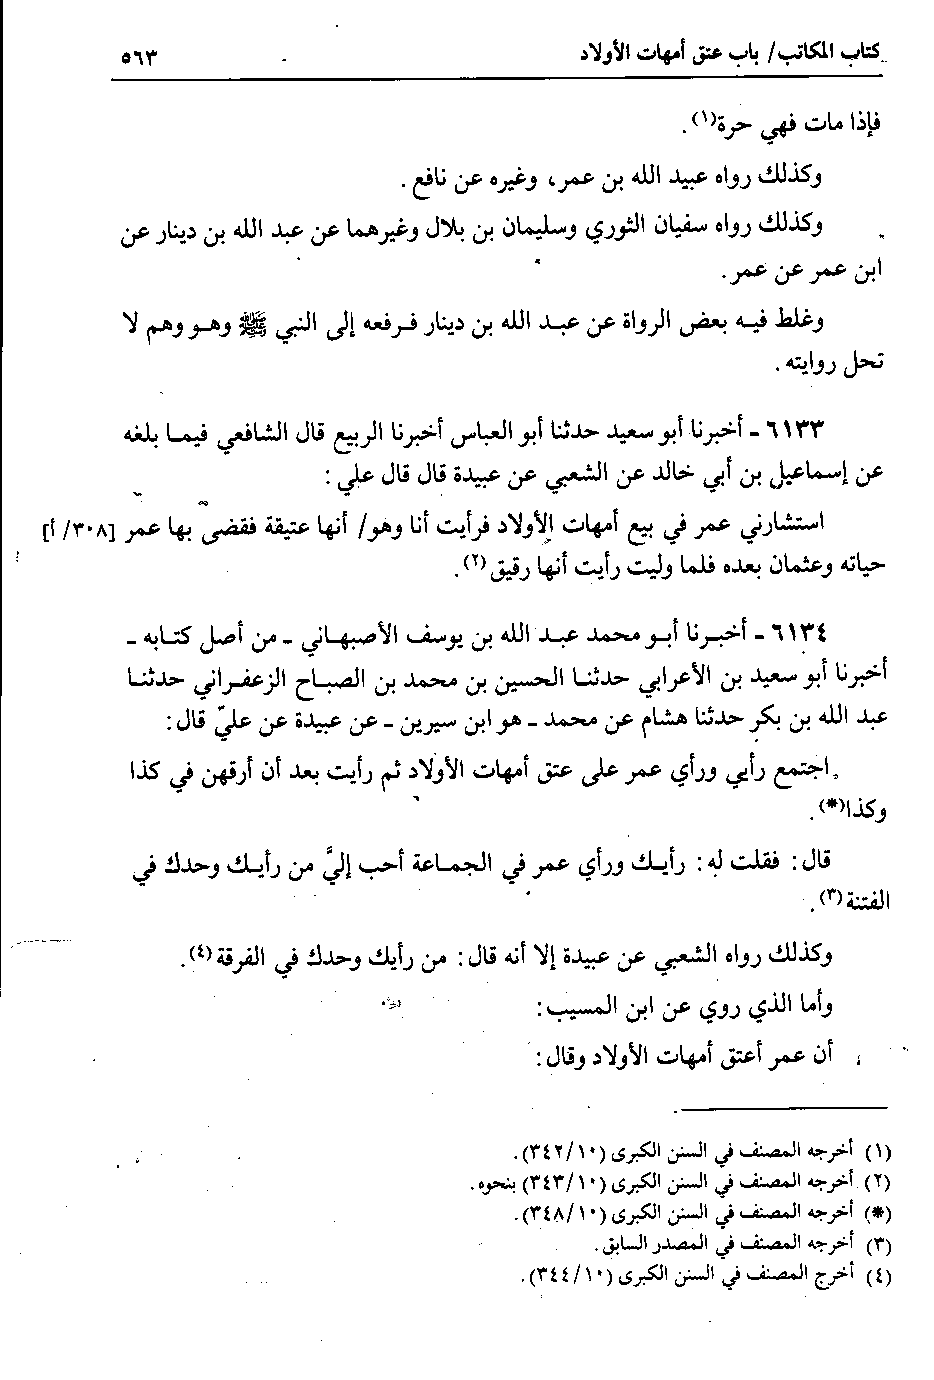 كتاب المكاتب/ باب عتق أمهات الأولاد ٥٦٣
فإذا مات فهي حرة(١).
وكذلك رواه عبيد الله بن عمر، وغيره عن نافع.
وكذلك رواه سفيان الثوري وسليمان بن بلال وغيرهما عن عبد الله بن دينار عن
ابن عمر عن عمر.
وغلط فيه بعض الرواة عن عبد الله بن دينار فرفعه إلى النبي ﷺ وهو وهم لا
تحل روايته.
٦١٣٣ - أخبرنا أبو سعيد حدثنا أبو العباس أخبرنا الربيع قال الشافعي فيما بلغه
عن إسماعيل بن أبي خالد عن الشعبي عن عبيدة قال قال علي:
استشارني عمر في بيع أمهات الأولاد فرأيت أنا وهو/ أنها عتيقة فقضى بها عمر [٣٠٨/ أ]
حياته وعثمان بعده فلما وليت رأيت أنها رقيق(٢).
٦١٣٤ - أخبرنا أبو محمد عبد الله بن يوسف الأصبهاني - من أصل كتابه -
أخبرنا أبو سعيد بن الأعرابي حدثنا الحسين بن محمد بن الصباح الزعفراني حدثنا
عبد الله بن بكر حدثنا هشام عن محمد - هو ابن سيرين - عن عبيدة عن عليّ قال:
اجتمع رأيي ورأي عمر على عتق أمهات الأولاد ثم رأيت بعد أن أرقهن في كذا
وكذا(*).
قال: فقلت له: رأيك ورأي عمر في الجماعة أحب إليَّ من رأيك وحدك في
الفتنة(٣).
وكذلك رواه الشعبي عن عبيدة إلا أنه قال: من رأيك وحدك في الفرقة(٤).
وأما الذي روي عن ابن المسيب:
أن عمر أعتق أمهات الأولاد وقال:
(١) أخرجه المصنف في السنن الكبرى (٣٤٢/١٠).
(٢) أخرجه المصنف في السنن الكبرى (٣٤٣/١٠) بنحوه.
(*) أخرجه المصنف في السنن الكبرى (٣٤٨/١٠).
(٣) أخرجه المصنف في المصدر السابق.
(٤) أخرج المصنف في السنن الكبرى (٣٤٤/١٠).